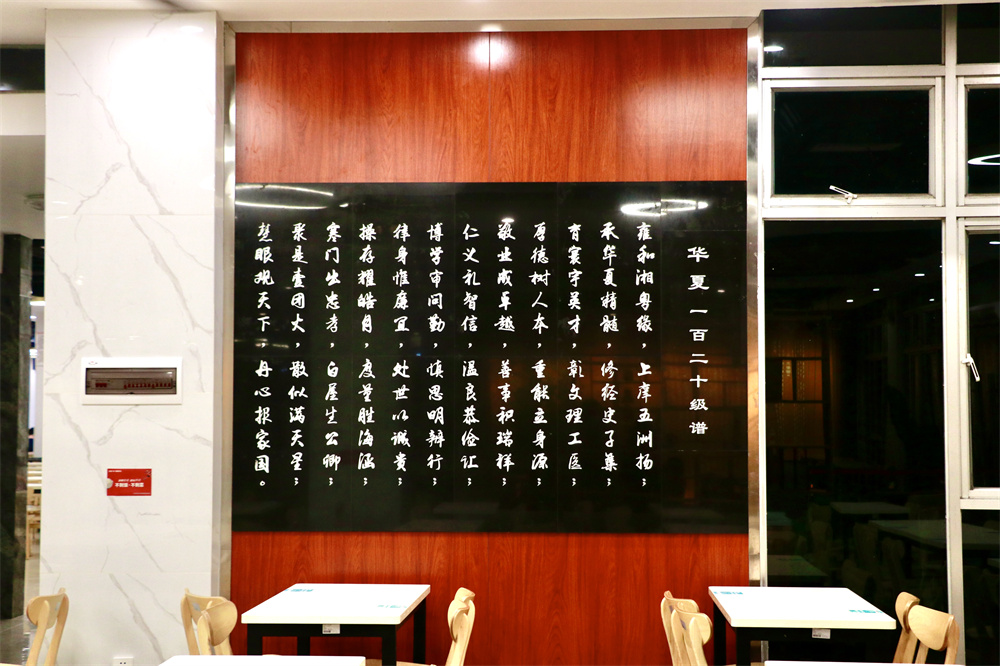 华夏一百二十级谱
雍和湘粤缘，上庠五洲扬；
承华夏精髓，修经史子集；
育寰宇英才，彰文理工医；
厚德树人本，重能立身源；
敬业成卓越，善事积瑞祥；
仁义礼智信，温良恭俭让；
博学审问勤，慎思明辨行；
律身惟廉宜，处世以诚贵；
操存耀皓月，度量胜海涵；
寒门出忠孝，白屋生公卿；
聚是壹团火，散似满天星；
慧眼观天下，丹心报家国。